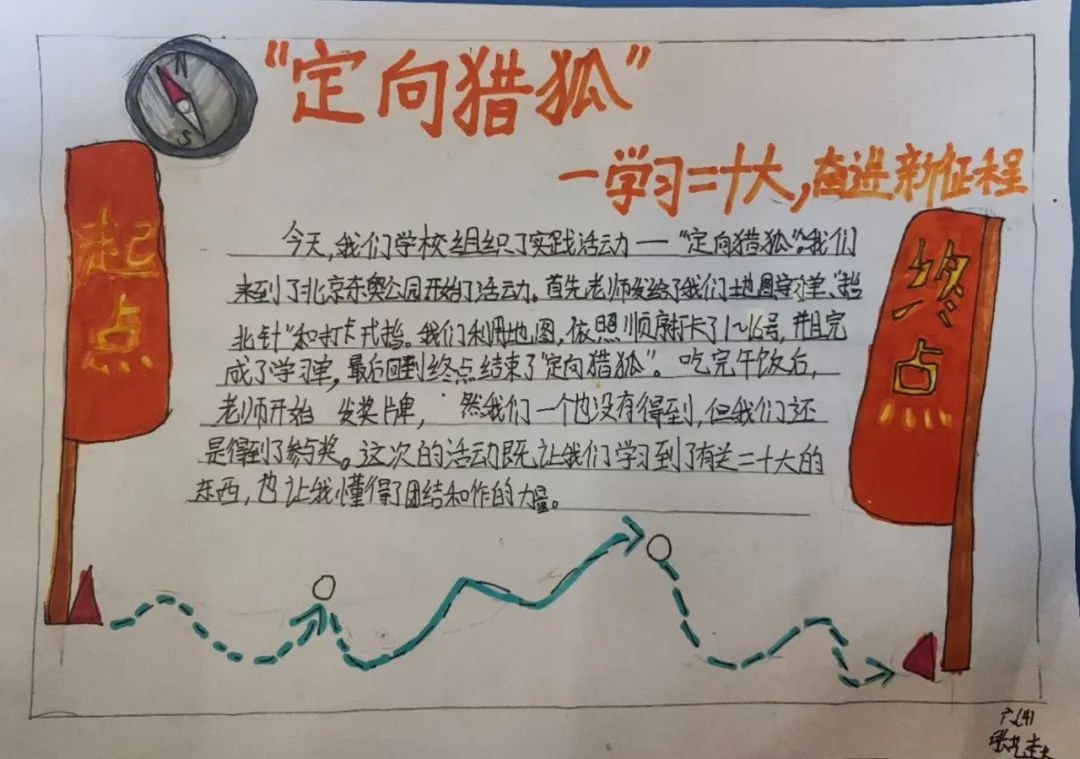 N
S
“定向猎狐”
—学习二十大,奋进新征程
起点
终点
今天,我们学校组织了实践活动—“定向猎狐”。我们
来到了北京东奥公园开始了活动。首先老师发给了我们地图学习单、“指
北针”和打卡式指。我们利用地图,依照顺序打卡了1~16号,并且完
成了学习单,最后回到终点结束了“定向猎狐”。吃完午饭后,
老师开始 发奖牌, 然我们一个也没有得到,但我们还
是得到了参与奖。这次的活动既让我们学习到了有关二十大的
东西,也让我懂得了团结和作的力量。
(4)